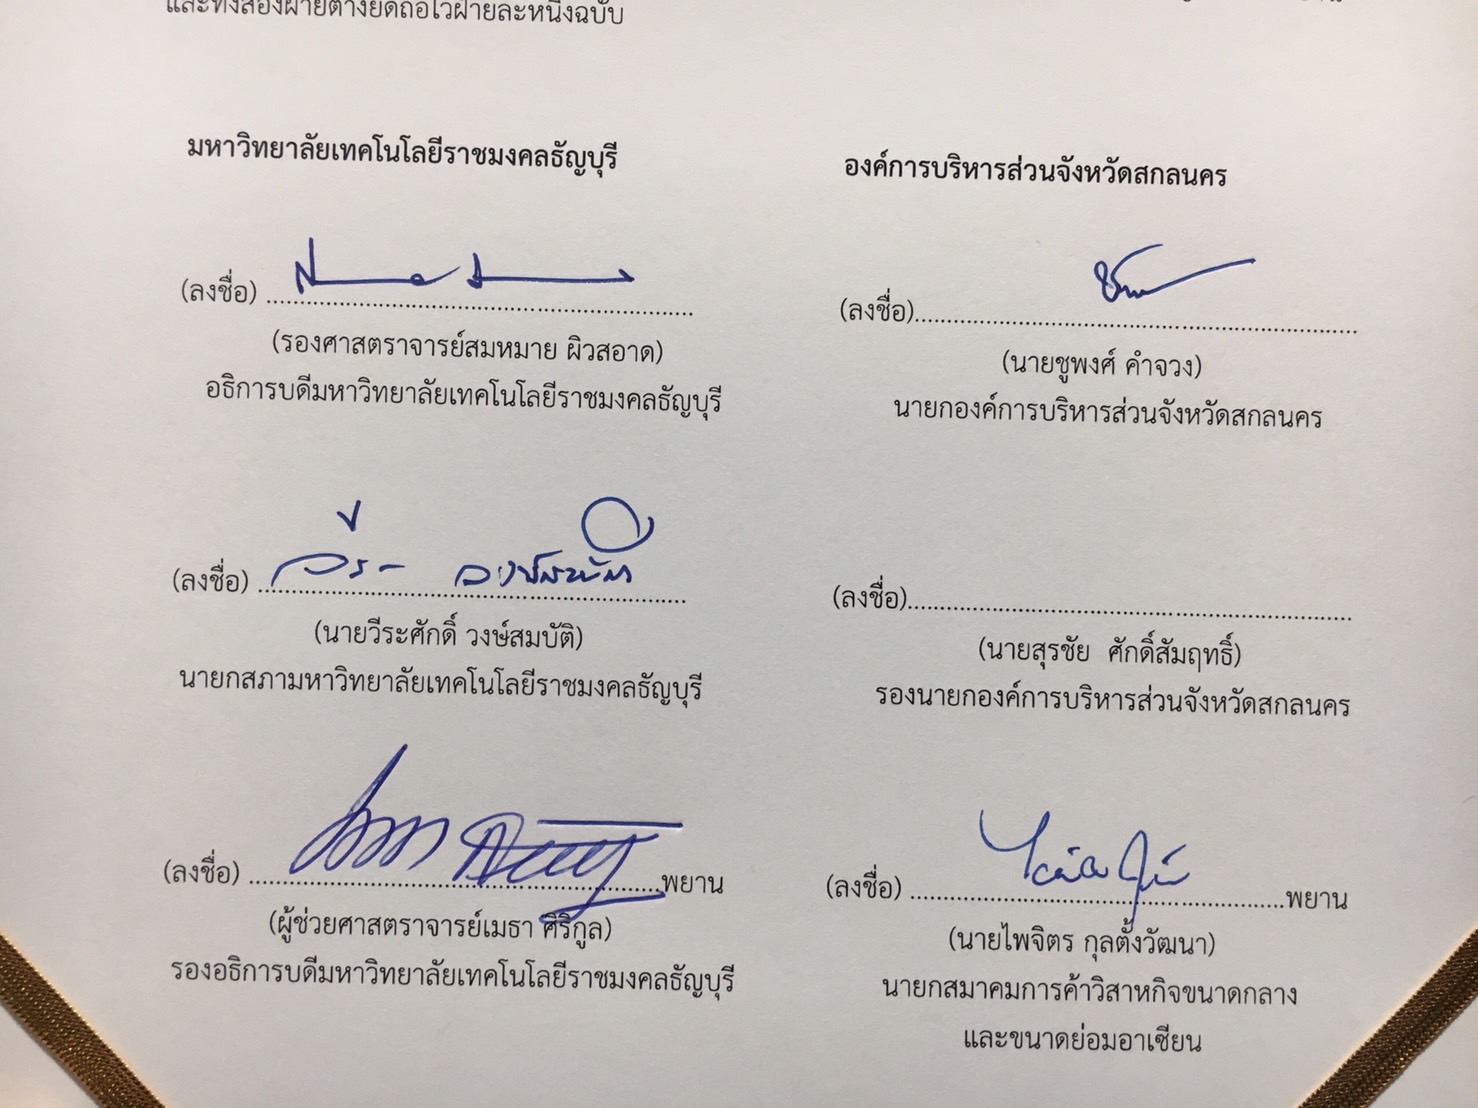 และทั้งสองฝ่ายต่างยึดถือไว้ฝ่ายละหนึ่งฉบับ
มหาวิทยาลัยเทคโนโลยีราชมงคลธัญบุรี
(ลงชื่อ) ..........................................................
(รองศาสตราจารย์สมหมาย ผิวสอาด)
อธิการบดีมหาวิทยาลัยเทคโนโลยีราชมงคลธัญบุรี
(ลงชื่อ) ..........................................................
(นายวีระศักดิ์ วงษ์สมบัติ)
นายกสภามหาวิทยาลัยเทคโนโลยีราชมงคลธัญบุรี
(ลงชื่อ) ..........................................................พยาน
(ผู้ช่วยศาสตราจารย์เมธา ศิริกูล)
รองอธิการบดีมหาวิทยาลัยเทคโนโลยีราชมงคลธัญบุรี
องค์การบริหารส่วนจังหวัดสกลนคร
(ลงชื่อ)..........................................................
(นายชูพงศ์ คำจวง)
นายกองค์การบริหารส่วนจังหวัดสกลนคร
(ลงชื่อ)..........................................................
(นายสุรชัย ศักดิ์สัมฤทธิ์)
รองนายกองค์การบริหารส่วนจังหวัดสกลนคร
(ลงชื่อ) ..........................................................พยาน
(นายไพจิตร กุลตั้งวัฒนา)
นายกสมาคมการค้าวิสาหกิจขนาดกลาง
และขนาดย่อมอาเซียน